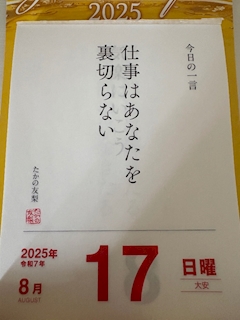 2025
今日の一言
仕事はあなたを
裏切らない
たかの友梨
2025年
令和7年
8月
AUGUST
17
日曜
大安